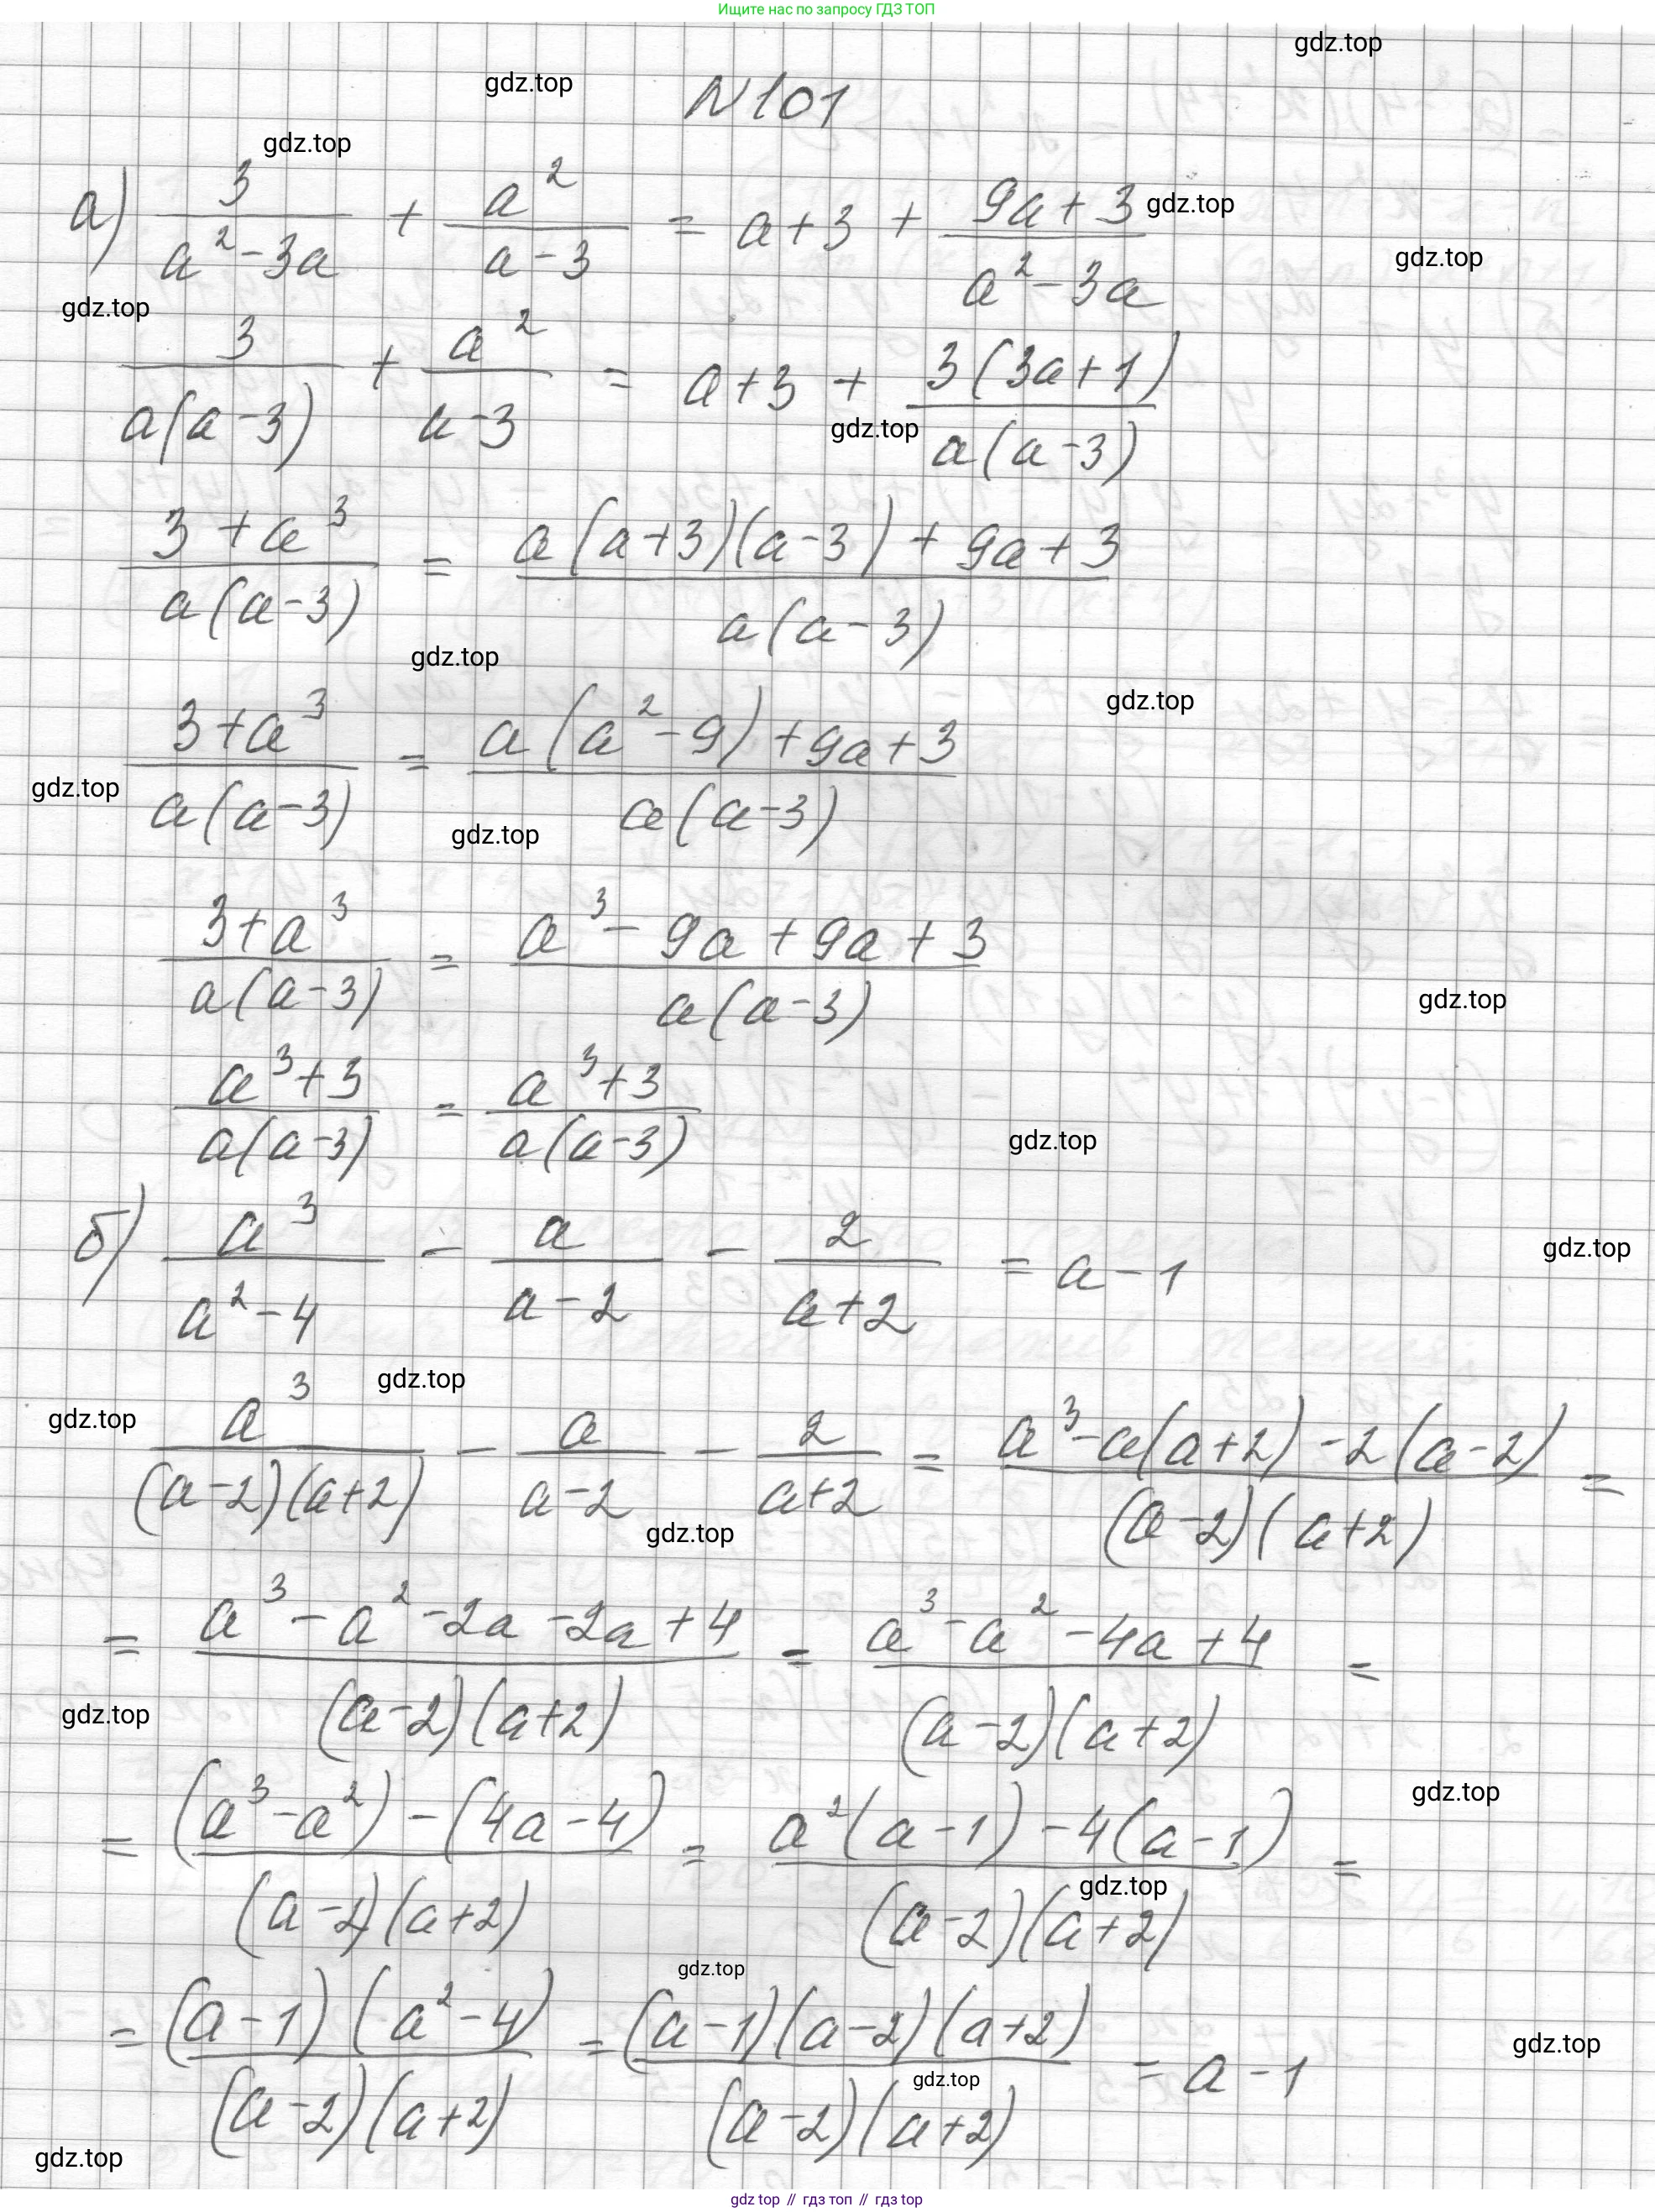 Ищите нас по запросу ГДЗ ТОП
gdz.top
gdz.top
№101
gdz.top
а) 3/(a²-3a) + a²/(a-3) = a+3 + (9a+3)/(a²-3a)
gdz.top
gdz.top
gdz.top
3/(a(a-3)) + a²/(a-3) = a+3 + 3(3a+1)/(a(a-3))
gdz.top
(3+a³)/(a(a-3)) = (a(a+3)(a-3)+9a+3)/(a(a-3))
gdz.top
gdz.top
(3+a³)/(a(a-3)) = (a(a²-9)+9a+3)/(a(a-3))
gdz.top
gdz.top
(3+a³)/(a(a-3)) = (a³-9a+9a+3)/(a(a-3))
gdz.top
(a³+3)/(a(a-3)) = (a³+3)/(a(a-3))
gdz.top
б) a³/(a²-4) - a/(a-2) - 2/(a+2) = a-1
gdz.top
gdz.top
gdz.top
a³/((a-2)(a+2)) - a/(a-2) - 2/(a+2) = (a³-a(a+2)-2(a-2))/((a-2)(a+2)) =
gdz.top
= (a³-a²-2a-2a+4)/((a-2)(a+2)) = (a³-a²-4a+4)/((a-2)(a+2)) =
gdz.top
gdz.top
= ((a³-a²)-(4a-4))/((a-2)(a+2)) = (a²(a-1)-4(a-1))/((a-2)(a+2)) =
gdz.top
gdz.top
= ((a-1)(a²-4))/((a-2)(a+2)) = ((a-1)(a-2)(a+2))/((a-2)(a+2)) = a-1
gdz.top
gdz.top
gdz.top
gdz top // гдз топ // гдз top